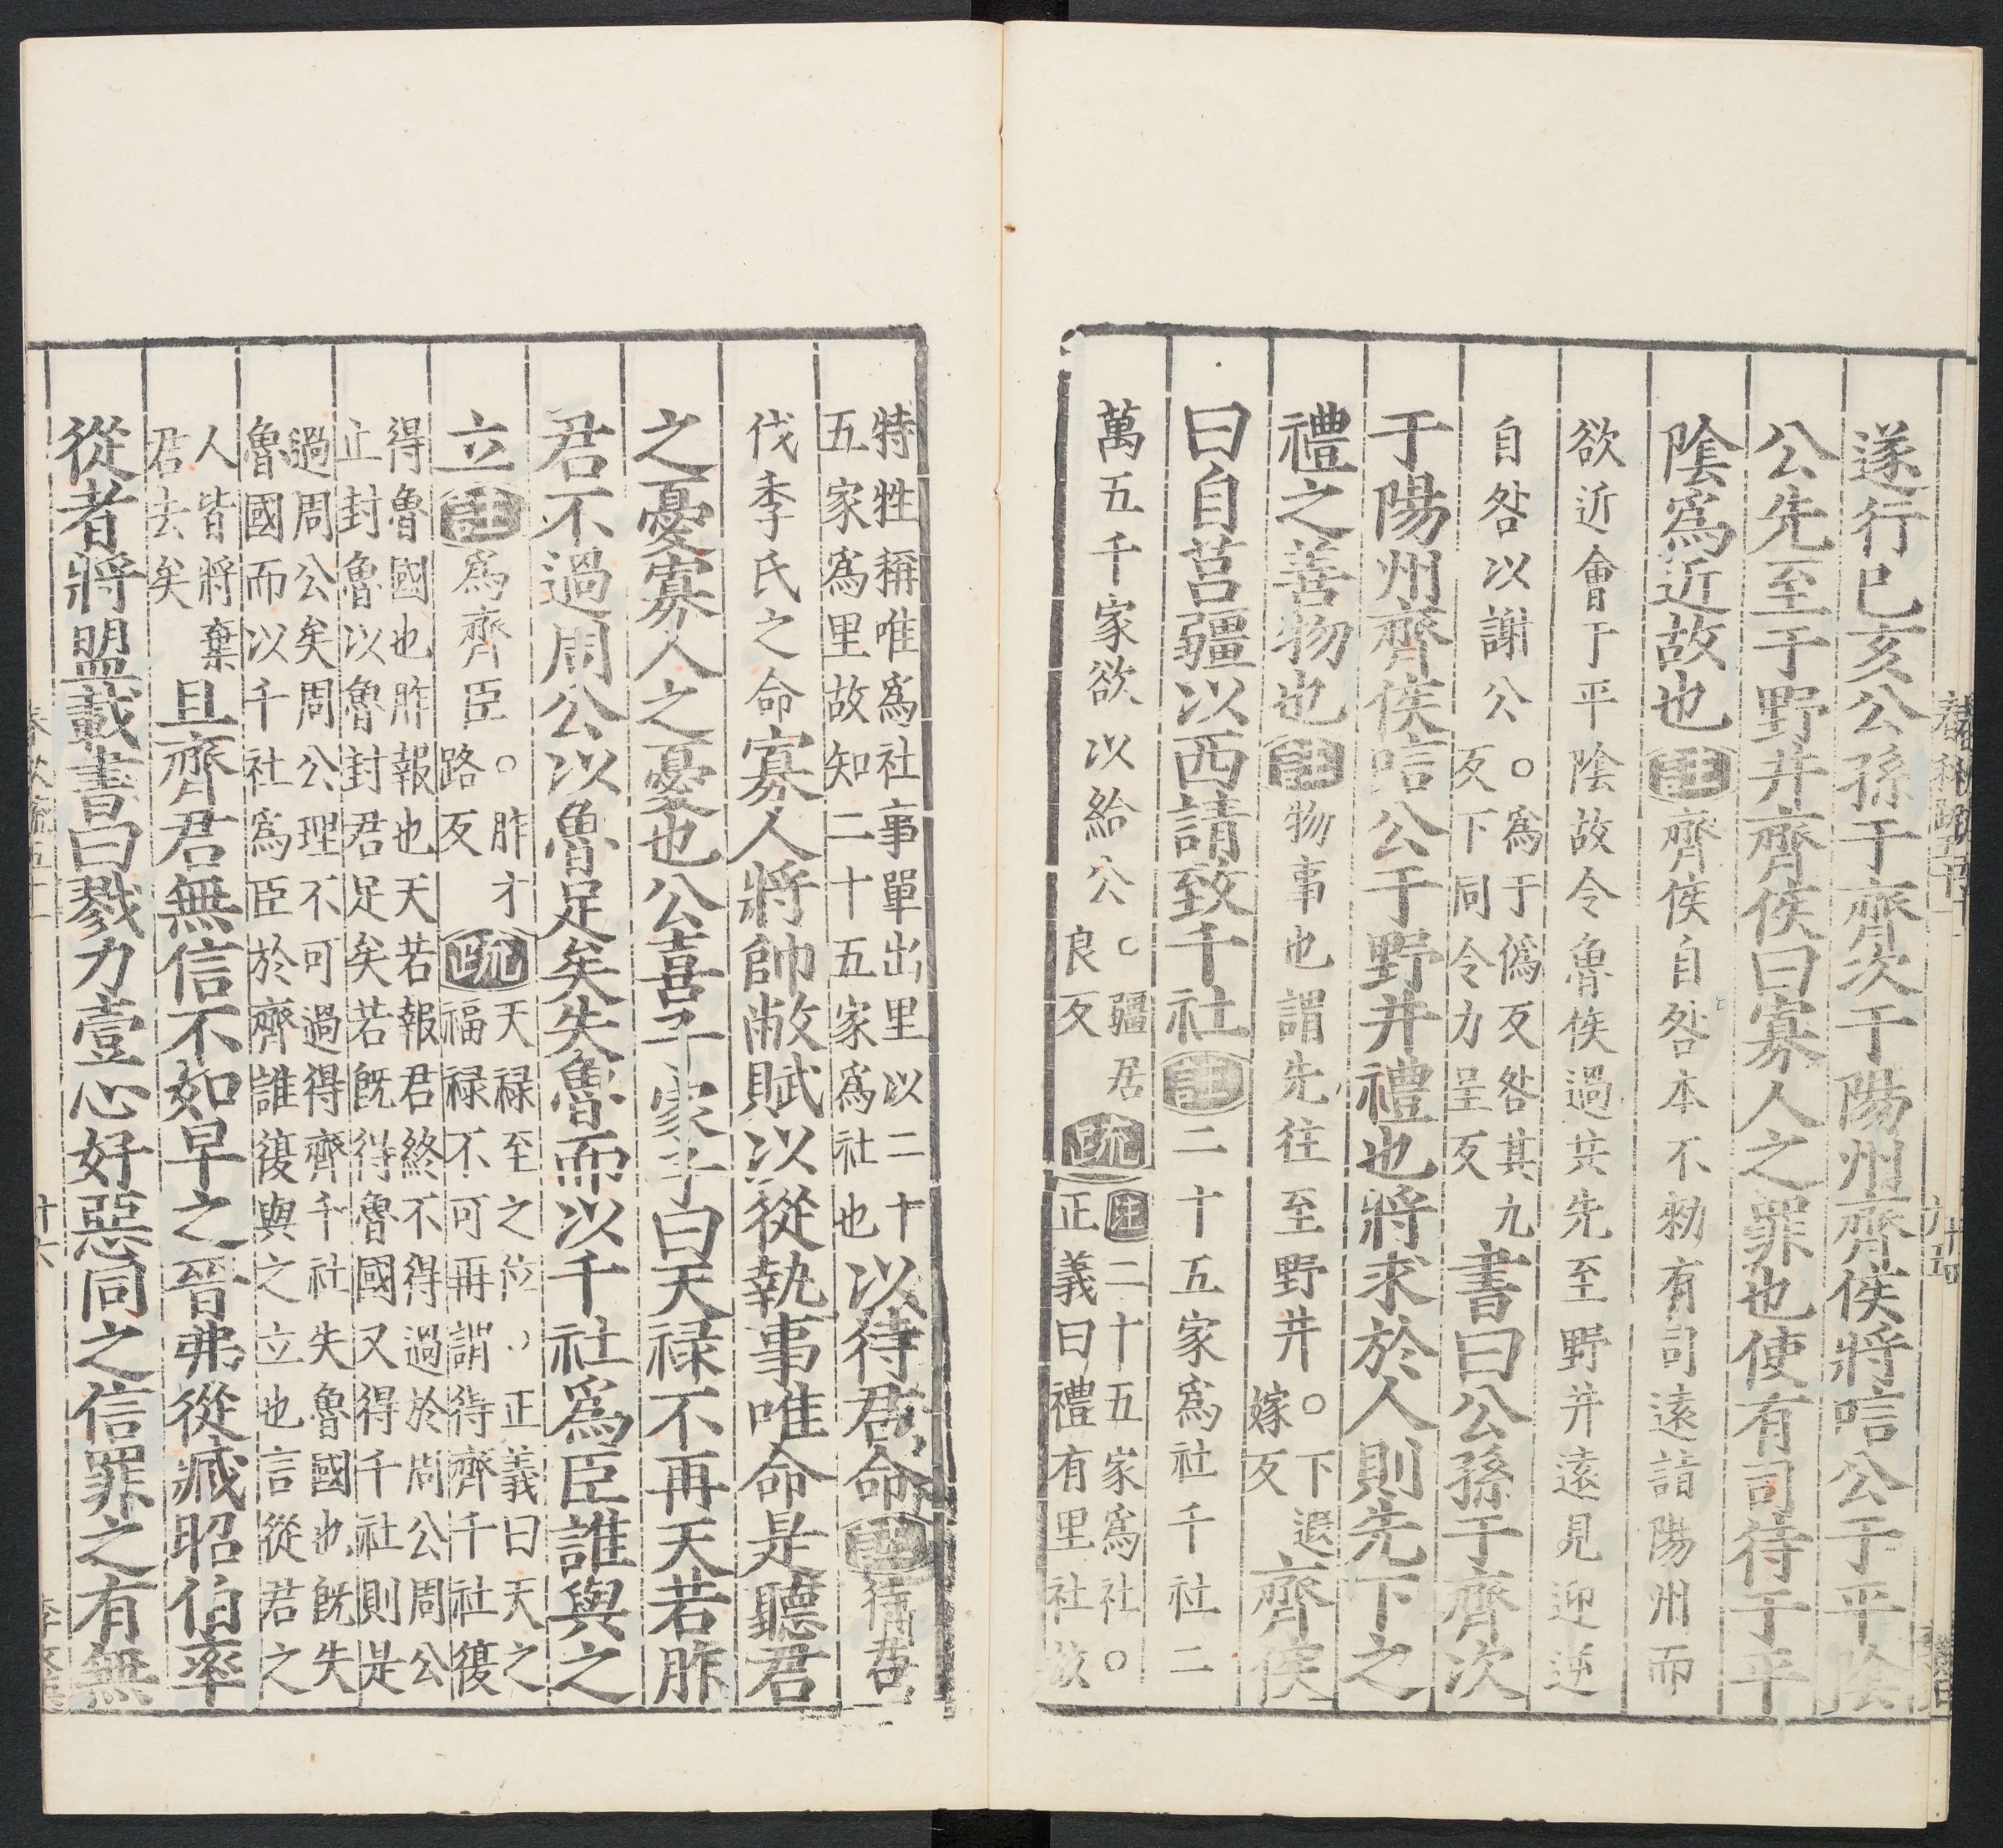 遂行己亥公孫于齊次于陽州齊侯將唁公于平陰
公先至于野井齊侯曰寡人之罪也使有司待于平
陰爲近故也註齊侯自咎本不勑有司遠詣陽州而
欲近會于平陰故令魯侯過共先至野井遠見迎逆
自咎以謝公○爲于僞反咎其九
反下同令力呈反
書曰公孫于齊次
于陽州齊侯唁公于野井禮也將求於人則先下之
禮之善物也註物事也謂先往至野井○下遐
嫁反
齊侯
曰自莒疆以西請致千社註二十五家爲社千社二
萬五千家欲以給公○疆居
良反
疏註二十五家爲社○
正義曰禮有里社故
特牲稱唯爲社事單出里以二十
五家爲里故知二十五家爲社也
以待君命註待君
伐季氏之命寡人將帥敝賦以從執事唯命是聽君
之憂寡人之憂也公喜子家子曰天祿不再天若胙
君不過周公以魯足矣失魯而以千社爲臣誰與之
立註爲齊臣○胙才
路反
疏天祿至之位○正義曰天之
福祿不可再謂待齊千社復
得魯國也胙報也天若報君終不得過於周公周公
止封魯以魯封君足矣若旣得魯國又得千社則是
過周公矣周公理不可過得齊千社失魯國也旣失
魯國而以千社爲臣於齊誰復與之立也言從君之
人皆將棄
君去矣
且齊君無信不如早之晉弗從臧昭伯率
從者將盟載書曰戮力壹心好惡同之信罪之有無